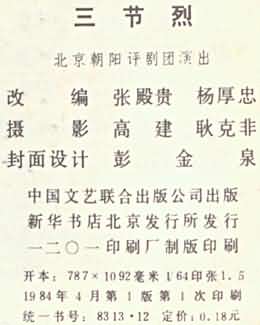 三节烈
北京朝阳评剧团演出
改 编 张殿贵 杨厚忠
摄 影 高 建 耿克非
封面设计 彭 金 泉
中国文艺联合出版公司出版
新华书店北京发行所发行
一二〇一印刷厂制版印刷
开本：787×1092毫米 1/64印张1.5
1984年4月第1版第1次印刷
统一书号：8313·12 定价：0.18元